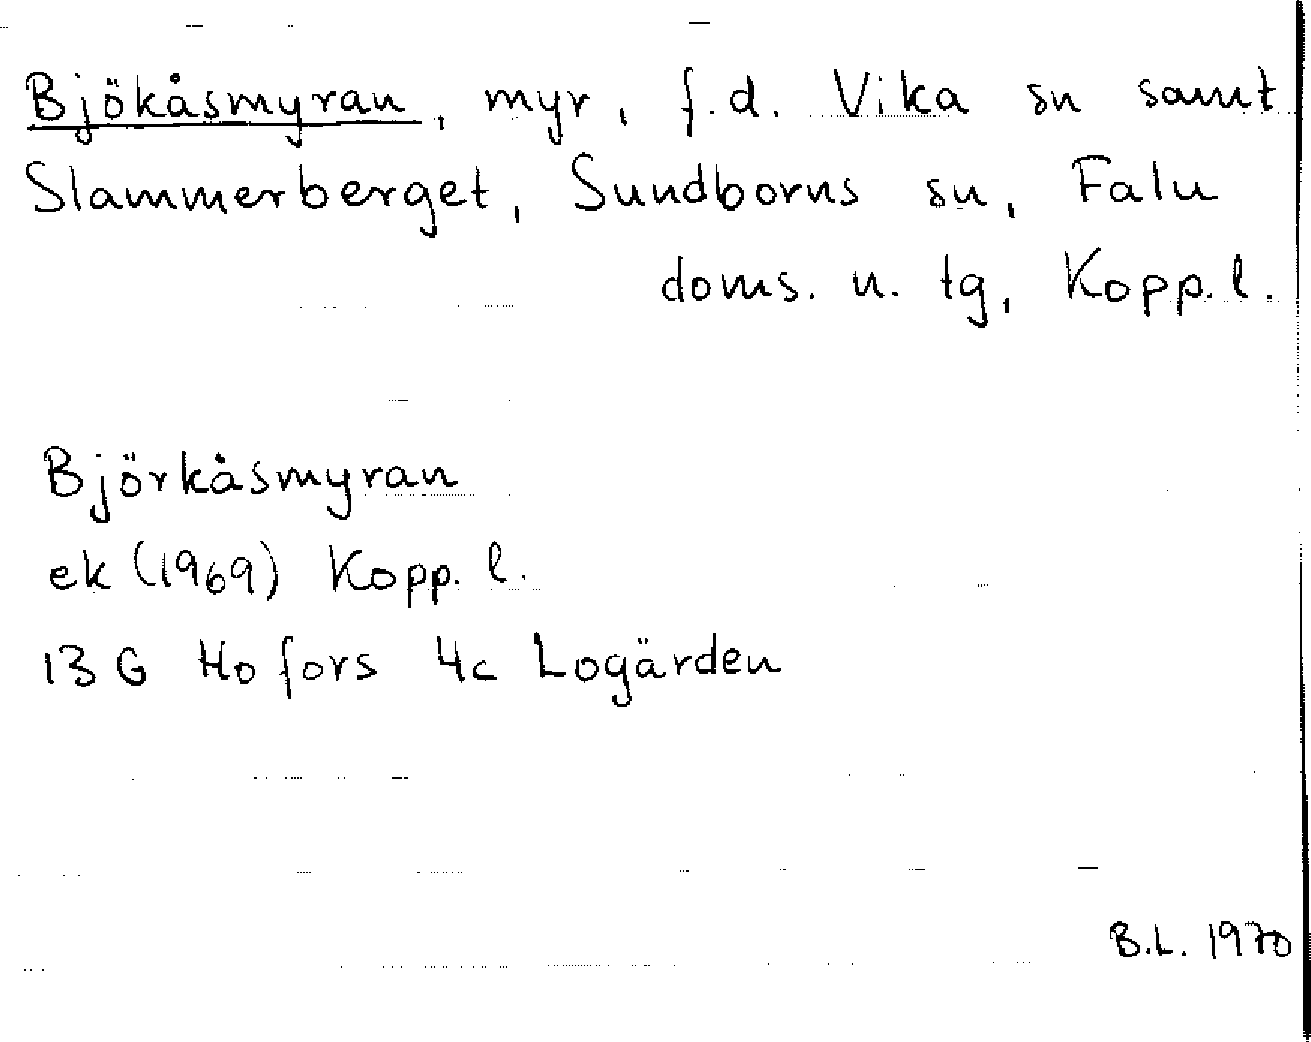 Bjökåsmyran, myr, f.d. Vika sn samt
Slammerberget, Sundborns sn, Falu
doms. n. tg, Kopp. l.
Björkåsmyran
ek (1969) Kopp. l.
13 G Hofors 4c Logärden
B.L. 1970